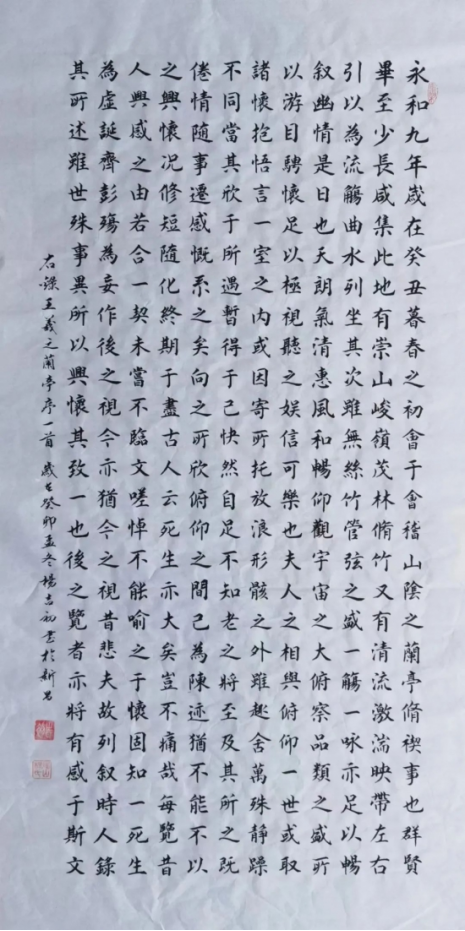 永和九年歲在癸丑暮春之初會于會稽山陰之蘭亭脩禊事也群賢
畢至少長咸集此地有崇山峻嶺茂林脩竹又有清流激湍映帶左右
引以為流觴曲水列坐其次雖無絲竹管弦之盛一觴一咏亦足以暢
叙幽情是日也天朗氣清惠風和暢仰觀宇宙之大俯察品類之盛所
以游目騁懷足以極視聽之娱信可樂也夫人之相與俯仰一世或取
諸懷抱悟言一室之内或因寄所托放浪形骸之外雖趣舍萬殊静躁
不同當其欣于所遇暫得于己快然自足不知老之將至及其所之既
倦情隨事遷感慨系之矣向之所欣俯仰之間已為陳迹猶不能不以
之興懷况修短隨化終期于盡古人云死生亦大矣豈不痛哉每覽昔
人興感之由若合一契未嘗不臨文嗟悼不能喻之于懷固知一死生
為虛誕齊彭殤為妄作後之視今亦猶今之視昔悲夫故列叙時人錄
其所述雖世殊事異所以興懷其致一也後之覽者亦將有感于斯文
右錄王羲之蘭亭序一首 歲在癸卯孟冬楊吉初書於新昌